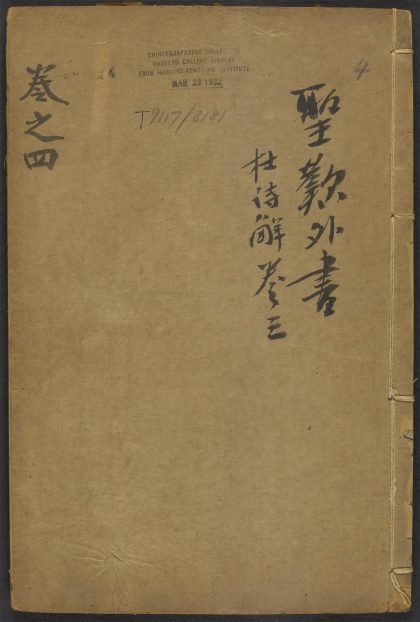 4
聖歎外書
杜詩解卷三
CHINESE-JAPANESE COLLECTION
HARVARD COLLEGE LIBRARY
FROM HARVARD-YENCHING INSTITUTE
MAR 23 1932
卷之四